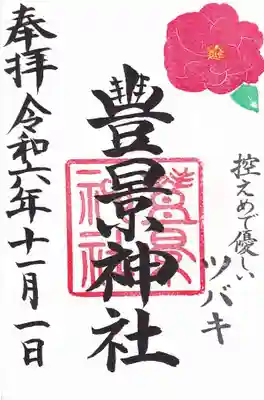 控えめで優しい
ツバキ
豊景神社
豊景神社
奉拝 令和六年十一月一日